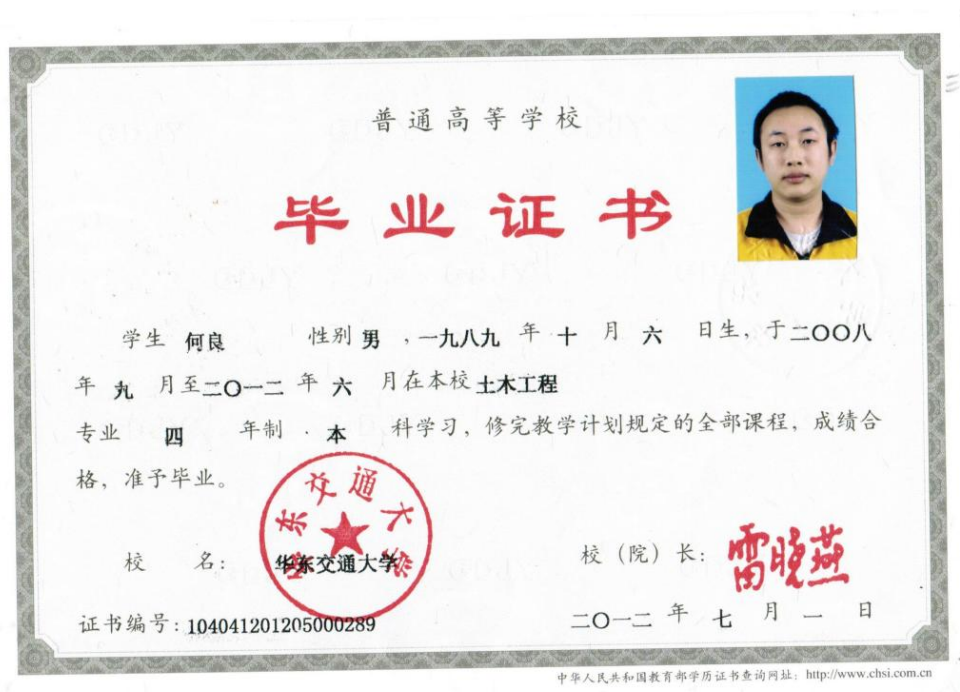 普通高等学校
毕业证书
学生 何良 性别 男 ，一九八九 年 十 月 六 日生，于二〇〇八
年 九 月至二〇一二 年 六 月在本校 土木工程
专业 四 年制 本 科学习，修完教学计划规定的全部课程，成绩合
格，准予毕业。
华东交通大学
校 名： 华东交通大学
校（院）长： 雷晓燕
证书编号：104041201205000289
二〇一二 年 七 月 一 日
中华人民共和国教育部学历证书查询网址：http://www.chsi.com.cn